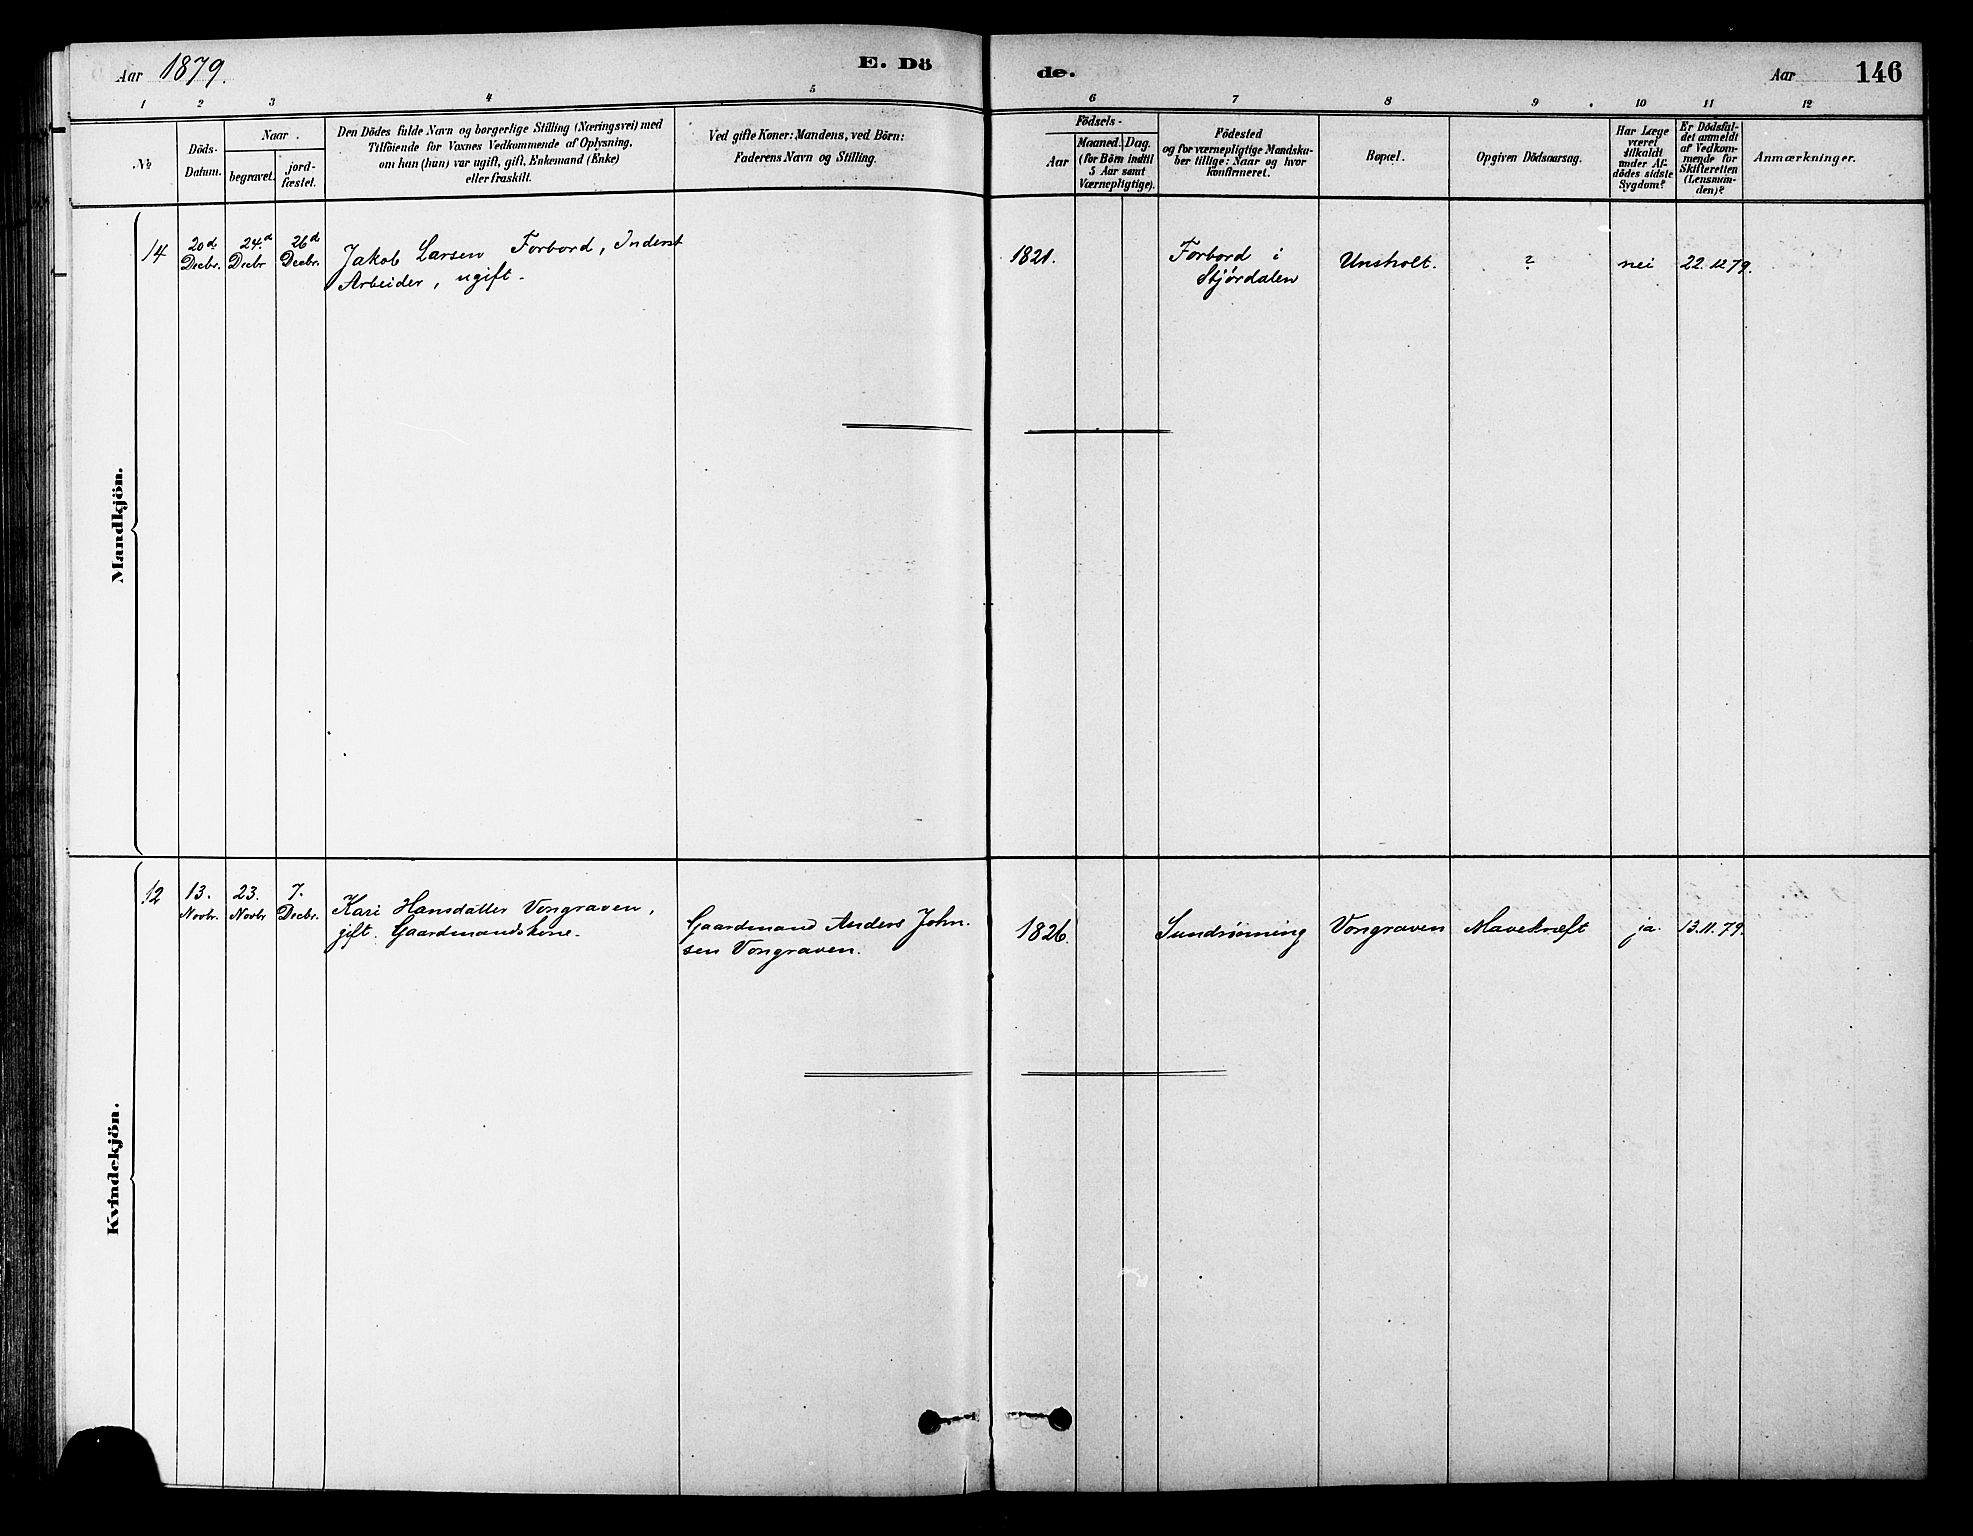 Aar 1879.
E. Dö
de.
Aar
146
1 2 3 4 5 6 7 8 9 10 11 12
No
Döds-
Datum.
Naar
begravet.
jord-
fæstet.
Den Dödes fulde Navn og borgerlige Stilling (Næringsvei) med
Tilföiende for Voxnes Vedkommende af Oplysning,
om han (hun) var ugift, gift, Enkemand (Enke)
eller fraskilt.
Ved gifte Koner: Mandens, ved Börn:
Faderens Navn og Stilling.
Födsels-
Aar
Maaned.
Dag.
(for Börn indtil
5 Aar samt
Værnepligtige).
Födested
og for værnepligtige Mandska-
ber tillige: Naar og hvor
konfirmeret.
Bopæl.
Opgiven Dödsaarsag.
Har Læge
været
tilkaldt
under Af-
dödes sidste
Sygdom?
Er Dödsfal-
det anmeldt
af Vedkom-
mende for
Skifteretten
(Lensman-
den)?
Anmærkninger.
Mandkjön.
14
20d
Decbr.
24.d
Decbr
26d
Decbr.
Jakob Larsen Forbord, Inderst
Arbeider, ugift.
1821.
Forbord i
Stjørdalen
Unsholt.
?
nei
22.12 79.
Kvindekjön.
12
13.
Novbr.
23.
Novbr
7.
Decbr.
Kari Hansdatter Vongraven,
gift. Gaardmandskone.
Gaardmand Anders John.
sen Vongraven.
1826.
Vongraven
Mavekræft
ja.
13.11.79.